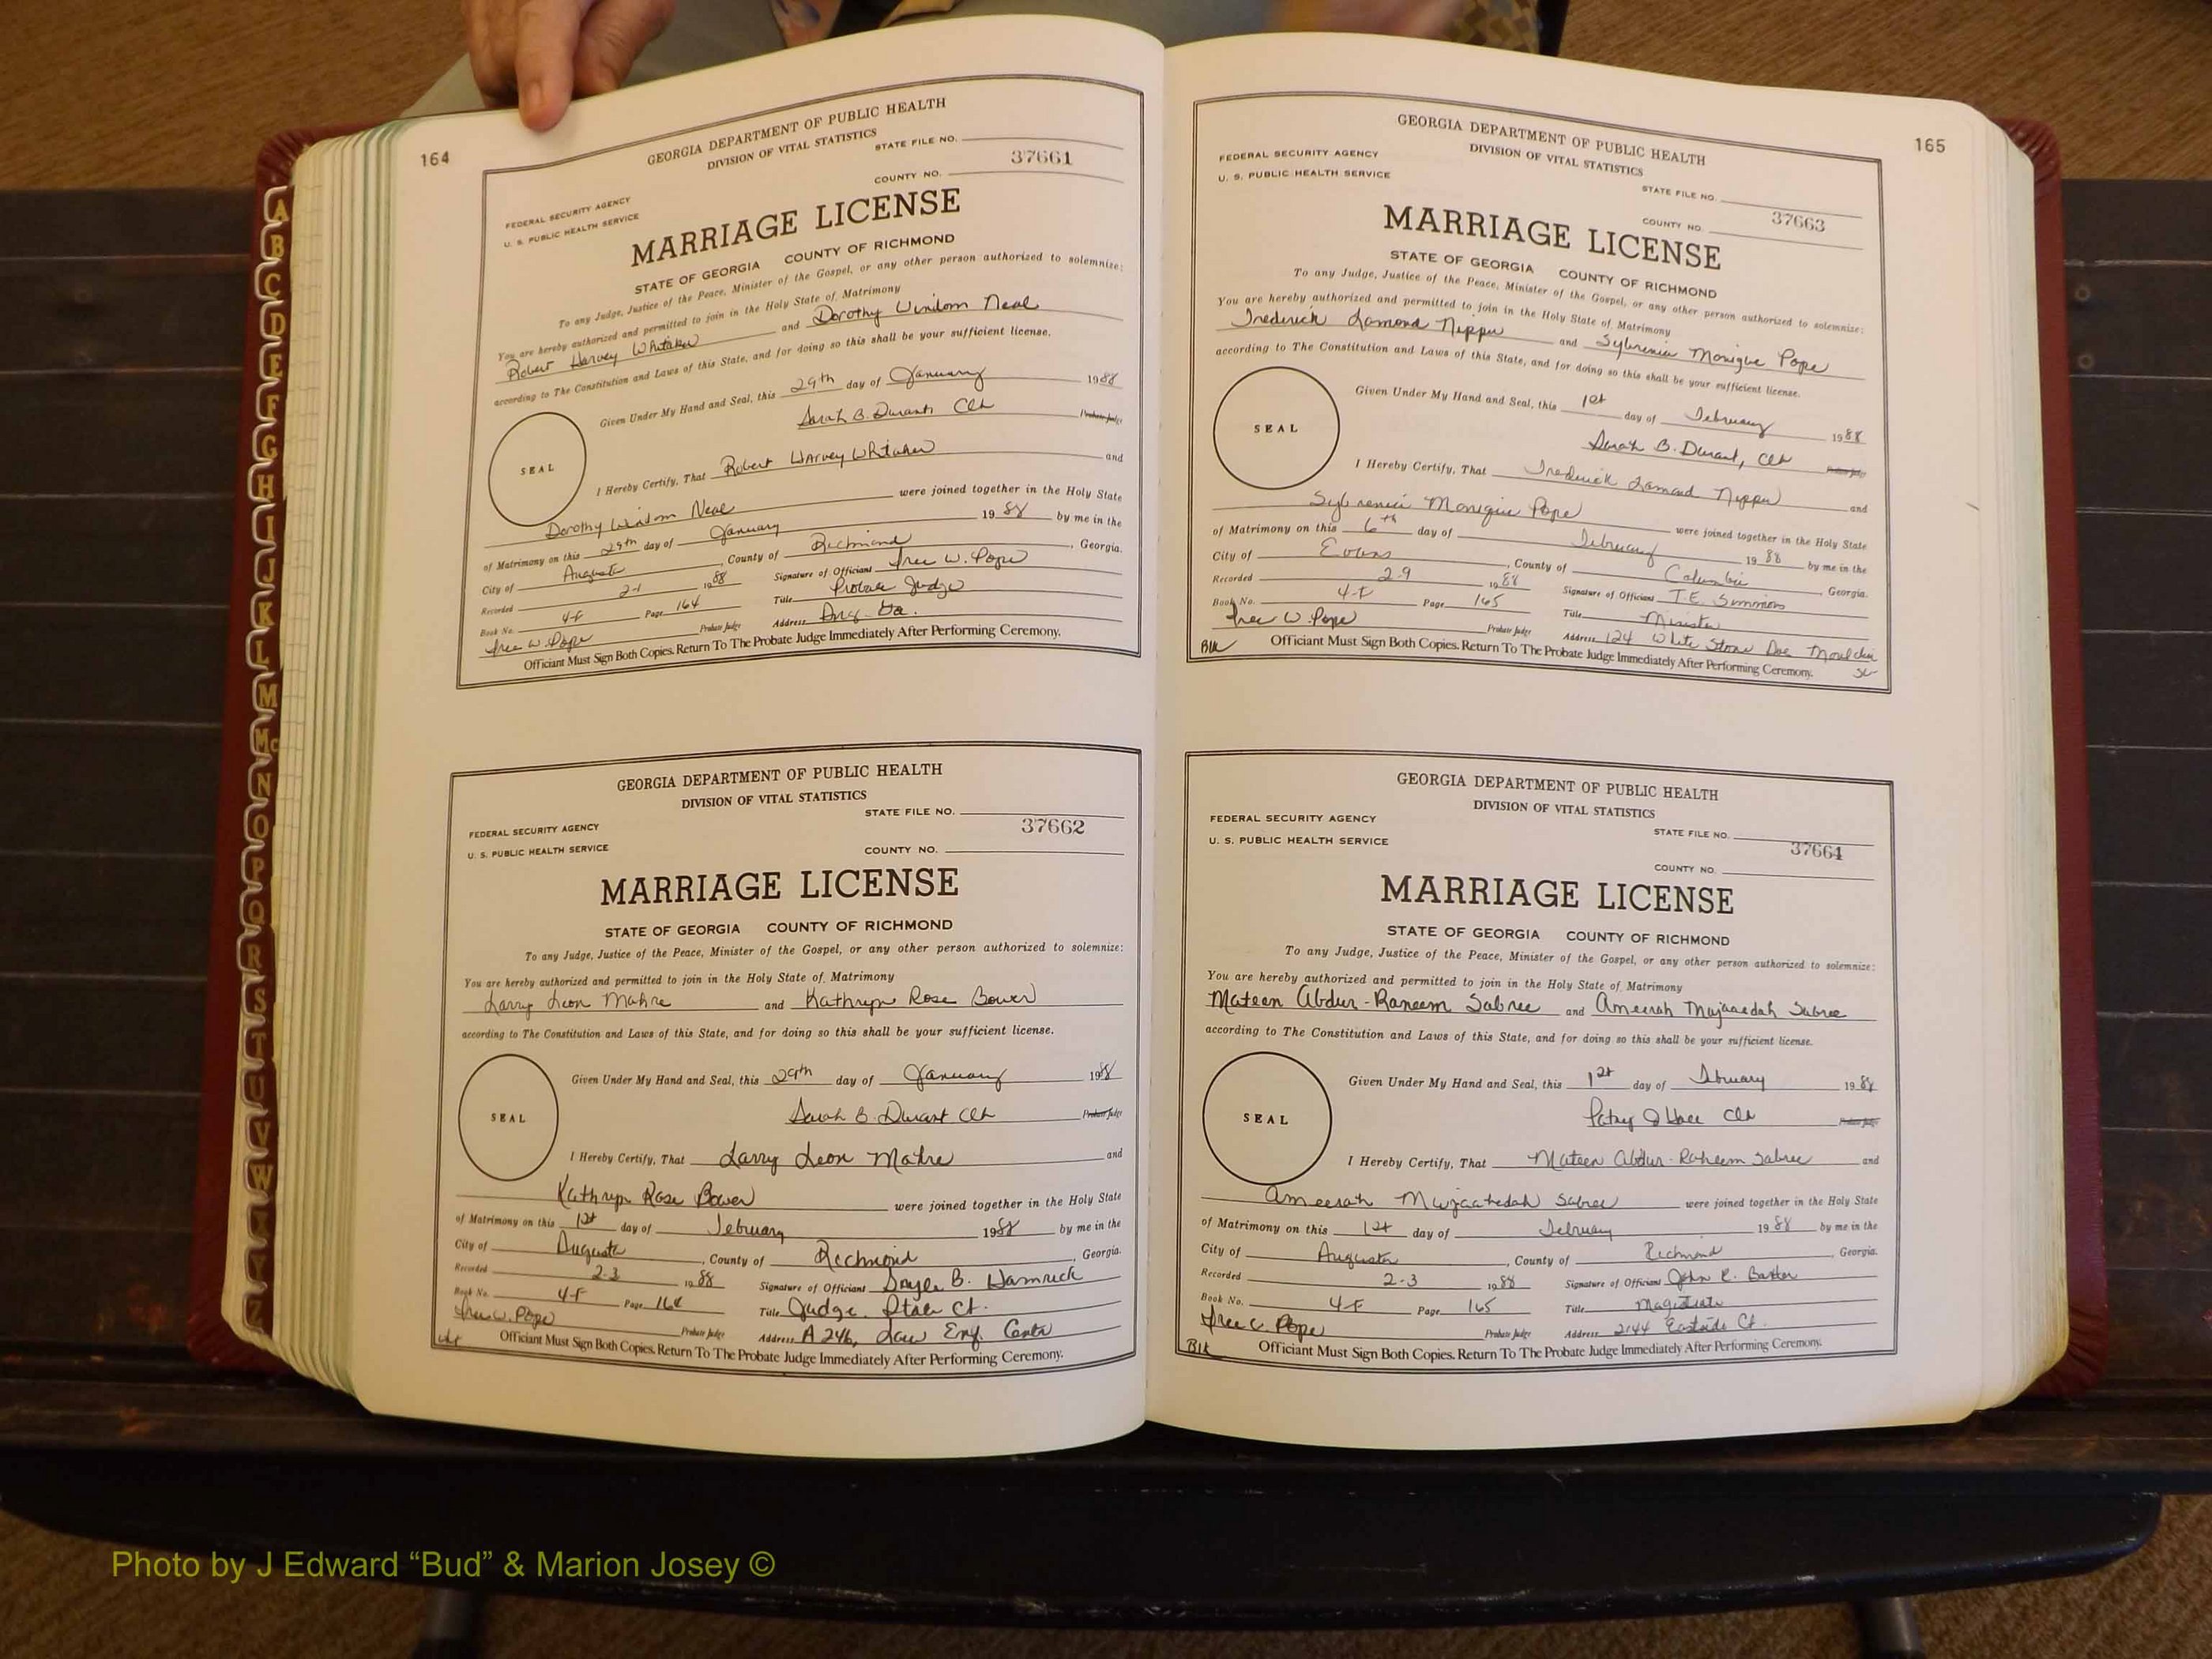 164
GEORGIA DEPARTMENT OF PUBLIC HEALTH
DIVISION OF VITAL STATISTICS
STATE FILE NO.
37661
COUNTY NO.
FEDERAL SECURITY AGENCY
U. S. PUBLIC HEALTH SERVICE
MARRIAGE LICENSE
STATE OF GEORGIA COUNTY OF RICHMOND
To any Judge, Justice of the Peace, Minister of the Gospel, or any other person authorized to solemnize:
You are hereby authorized and permitted to join in the Holy State of Matrimony
Robert Harvey Whitaker and Dorothy Windom Neal
according to The Constitution and Laws of this State, and for doing so this shall be your sufficient license.
Given Under My Hand and Seal, this 29th day of January 1988
Sarah B. Durant Clk Probate Judge
SEAL
I Hereby Certify, That Robert Harvey Whitaker and
Dorothy Windom Neal were joined together in the Holy State
of Matrimony on this 29th day of January 1988 by me in the
City of Augusta, County of Richmond, Georgia.
Recorded 2-1 1988 Signature of Officiant W. Pope
Book No. 4-F Page 164 Title Probate Judge
W. Pope Probate Judge Address Aug. Ga.
Officiant Must Sign Both Copies. Return To The Probate Judge Immediately After Performing Ceremony.
GEORGIA DEPARTMENT OF PUBLIC HEALTH
DIVISION OF VITAL STATISTICS
STATE FILE NO.
37662
FEDERAL SECURITY AGENCY
U. S. PUBLIC HEALTH SERVICE
COUNTY NO.
MARRIAGE LICENSE
STATE OF GEORGIA COUNTY OF RICHMOND
To any Judge, Justice of the Peace, Minister of the Gospel, or any other person authorized to solemnize:
You are hereby authorized and permitted to join in the Holy State of Matrimony
Larry Leon Mahre and Kathryn Rose Bower
according to The Constitution and Laws of this State, and for doing so this shall be your sufficient license.
Given Under My Hand and Seal, this 29th day of January 1988
Sarah B. Durant Clk Probate Judge
SEAL
I Hereby Certify, That Larry Leon Mahre and
Kathryn Rose Bower were joined together in the Holy State
of Matrimony on this 1st day of February 1988 by me in the
City of Augusta, County of Richmond, Georgia.
Recorded 2-3 1988 Signature of Officiant B. Hamrick
Book No. 4-F Page 164 Title Judge, State Ct.
W. Pope Probate Judge Address A 246, Law Enf. Center
Officiant Must Sign Both Copies. Return To The Probate Judge Immediately After Performing Ceremony.
165
GEORGIA DEPARTMENT OF PUBLIC HEALTH
DIVISION OF VITAL STATISTICS
FEDERAL SECURITY AGENCY
U. S. PUBLIC HEALTH SERVICE
STATE FILE NO.
37663
COUNTY NO.
MARRIAGE LICENSE
STATE OF GEORGIA COUNTY OF RICHMOND
To any Judge, Justice of the Peace, Minister of the Gospel, or any other person authorized to solemnize:
You are hereby authorized and permitted to join in the Holy State of Matrimony
Frederick Lamond Nipper and Sybrenia Monique Pope
according to The Constitution and Laws of this State, and for doing so this shall be your sufficient license.
Given Under My Hand and Seal, this 1st day of February 1988
Sarah B. Durant, Clk Probate Judge
SEAL
I Hereby Certify, That Frederick Lamond Nipper and
Sybrenia Monique Pope were joined together in the Holy State
of Matrimony on this 6th day of February 1988 by me in the
City of Evans, County of Columbia Georgia.
Recorded 2-9 1988 Signature of Officiant T.E. Simmons
Book No. 4-F Page 165 Title Minister
W. Pope Probate Judge Address 124 White Stone
Blk Officiant Must Sign Both Copies. Return To The Probate Judge Immediately After Performing Ceremony.
GEORGIA DEPARTMENT OF PUBLIC HEALTH
DIVISION OF VITAL STATISTICS
FEDERAL SECURITY AGENCY
U. S. PUBLIC HEALTH SERVICE
STATE FILE NO.
37664
COUNTY NO.
MARRIAGE LICENSE
STATE OF GEORGIA COUNTY OF RICHMOND
To any Judge, Justice of the Peace, Minister of the Gospel, or any other person authorized to solemnize:
You are hereby authorized and permitted to join in the Holy State of Matrimony
Mateen Abdur-Raheem Sabree and Ameerah Mujaaedah Sabree
according to The Constitution and Laws of this State, and for doing so this shall be your sufficient license.
Given Under My Hand and Seal, this 1st day of February 1988
Clk Probate Judge
SEAL
I Hereby Certify, That Mateen Abdur-Raheem Sabree and
Ameerah Mujaahedah Sabree were joined together in the Holy State
of Matrimony on this 1st day of February 1988 by me in the
City of Augusta, County of Richmond, Georgia.
Recorded 2-3 1988 Signature of Officiant John R. Baxter
Book No. 4-F Page 165 Title Magistrate
Pope Probate Judge Address 2144 Eastside Ct.
Blk Officiant Must Sign Both Copies. Return To The Probate Judge Immediately After Performing Ceremony.
A
B
C
D
E
F
G
H
I
J
K
L
M
Mc
N
O
P
Q
R
S
T
U
V
W
X
Y
Z
Photo by J Edward “Bud” & Marion Josey ©